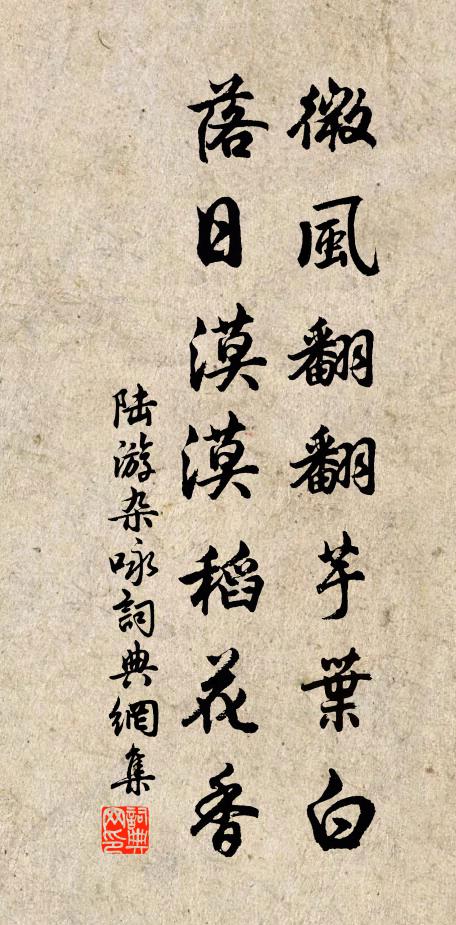 微風翻翻芋葉白
落日漠漠稻花香
陆游杂咏詞典網集
詞典网印